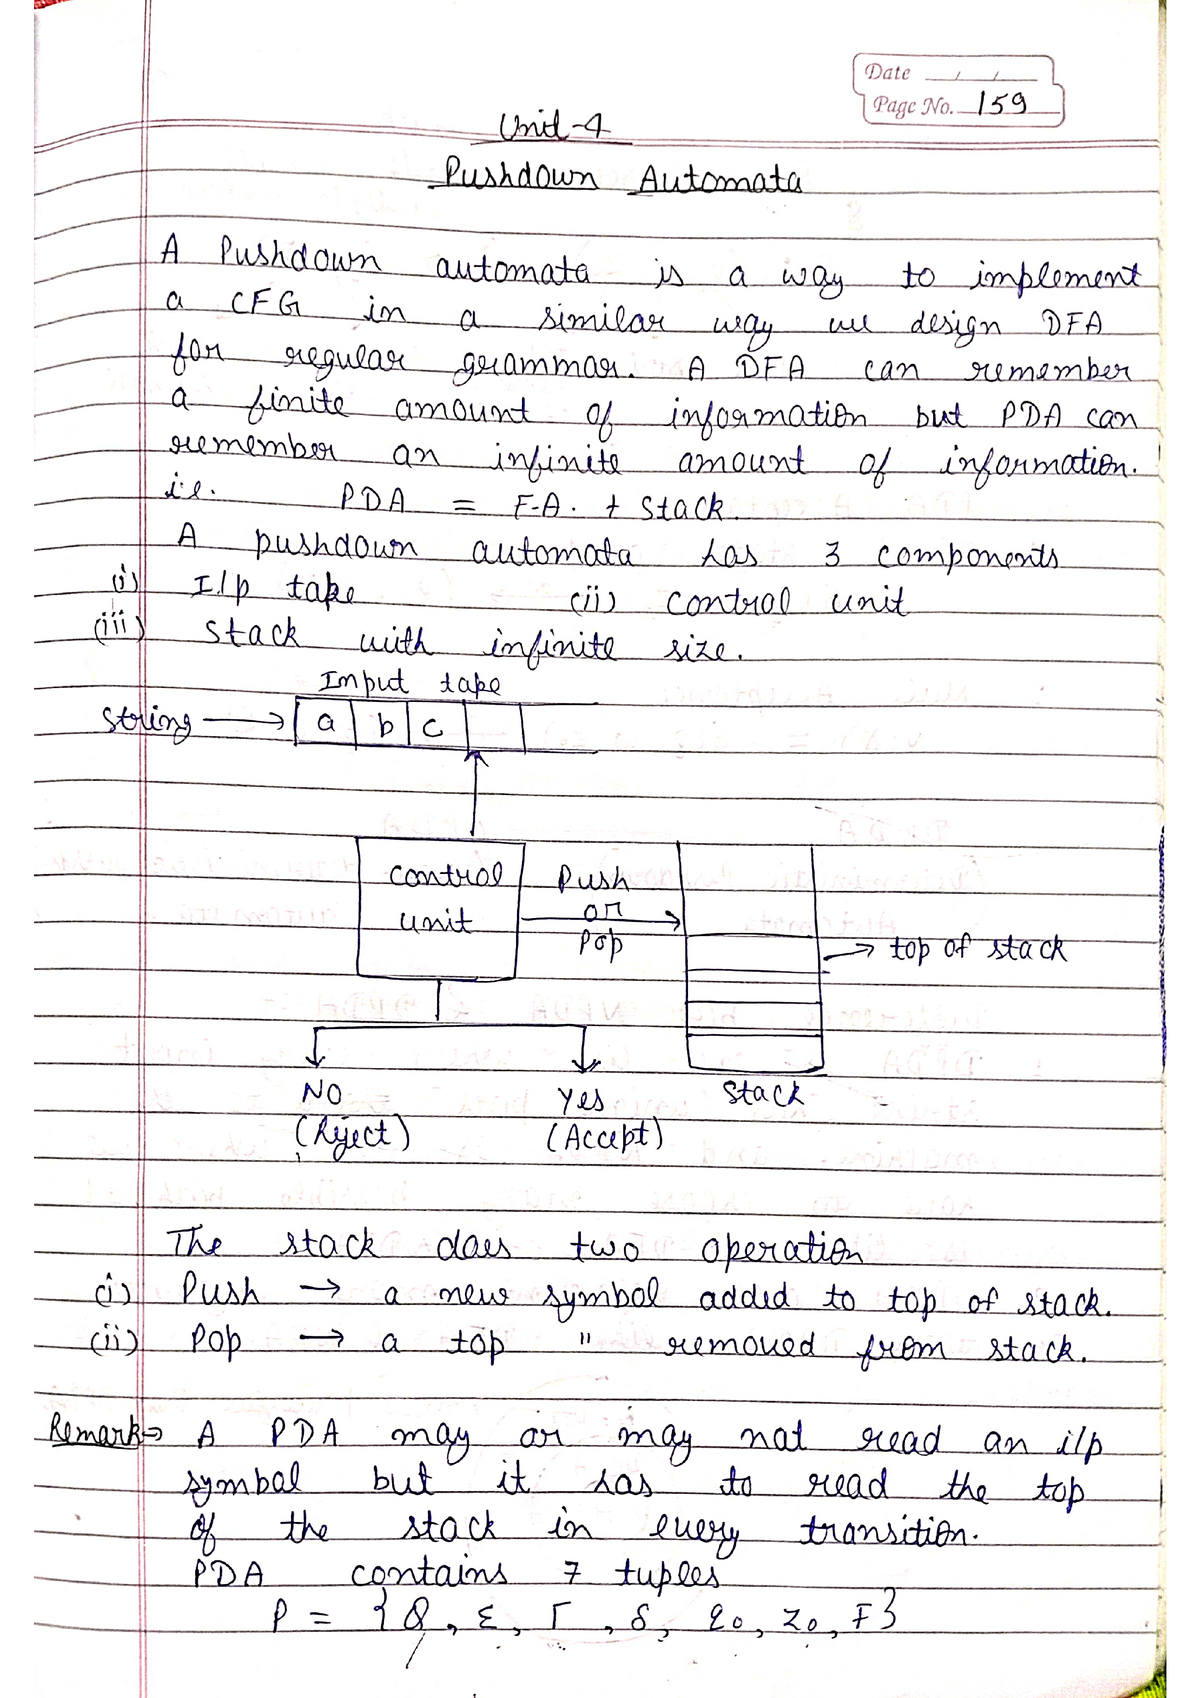 Date / /
Page No. 159
Unit-4
Pushdown Automata
A Pushdown automata is a way to implement
a CFG in a similar way we design DFA
for regular grammar. A DFA can remember
a finite amount of information but PDA can
remember an infinite amount of information.
i.e. PDA = F.A. + Stack.
A pushdown automata has 3 components
(i) I/p tape (ii) control unit
(iii) stack with infinite size.
Input tape
string → a b c
control unit
Push or Pop
→ top of stack
NO (Reject)
Yes (Accept)
Stack
The stack does two operation
(i) Push → a new symbol added to top of stack.
(ii) Pop → a top " removed from stack.
Remark→ A PDA may or may not read an i/p
symbol but it has to read the top
of the stack in every transition.
PDA contains 7 tuples
P = {Q, Σ, Γ, δ, q0, z0, F}